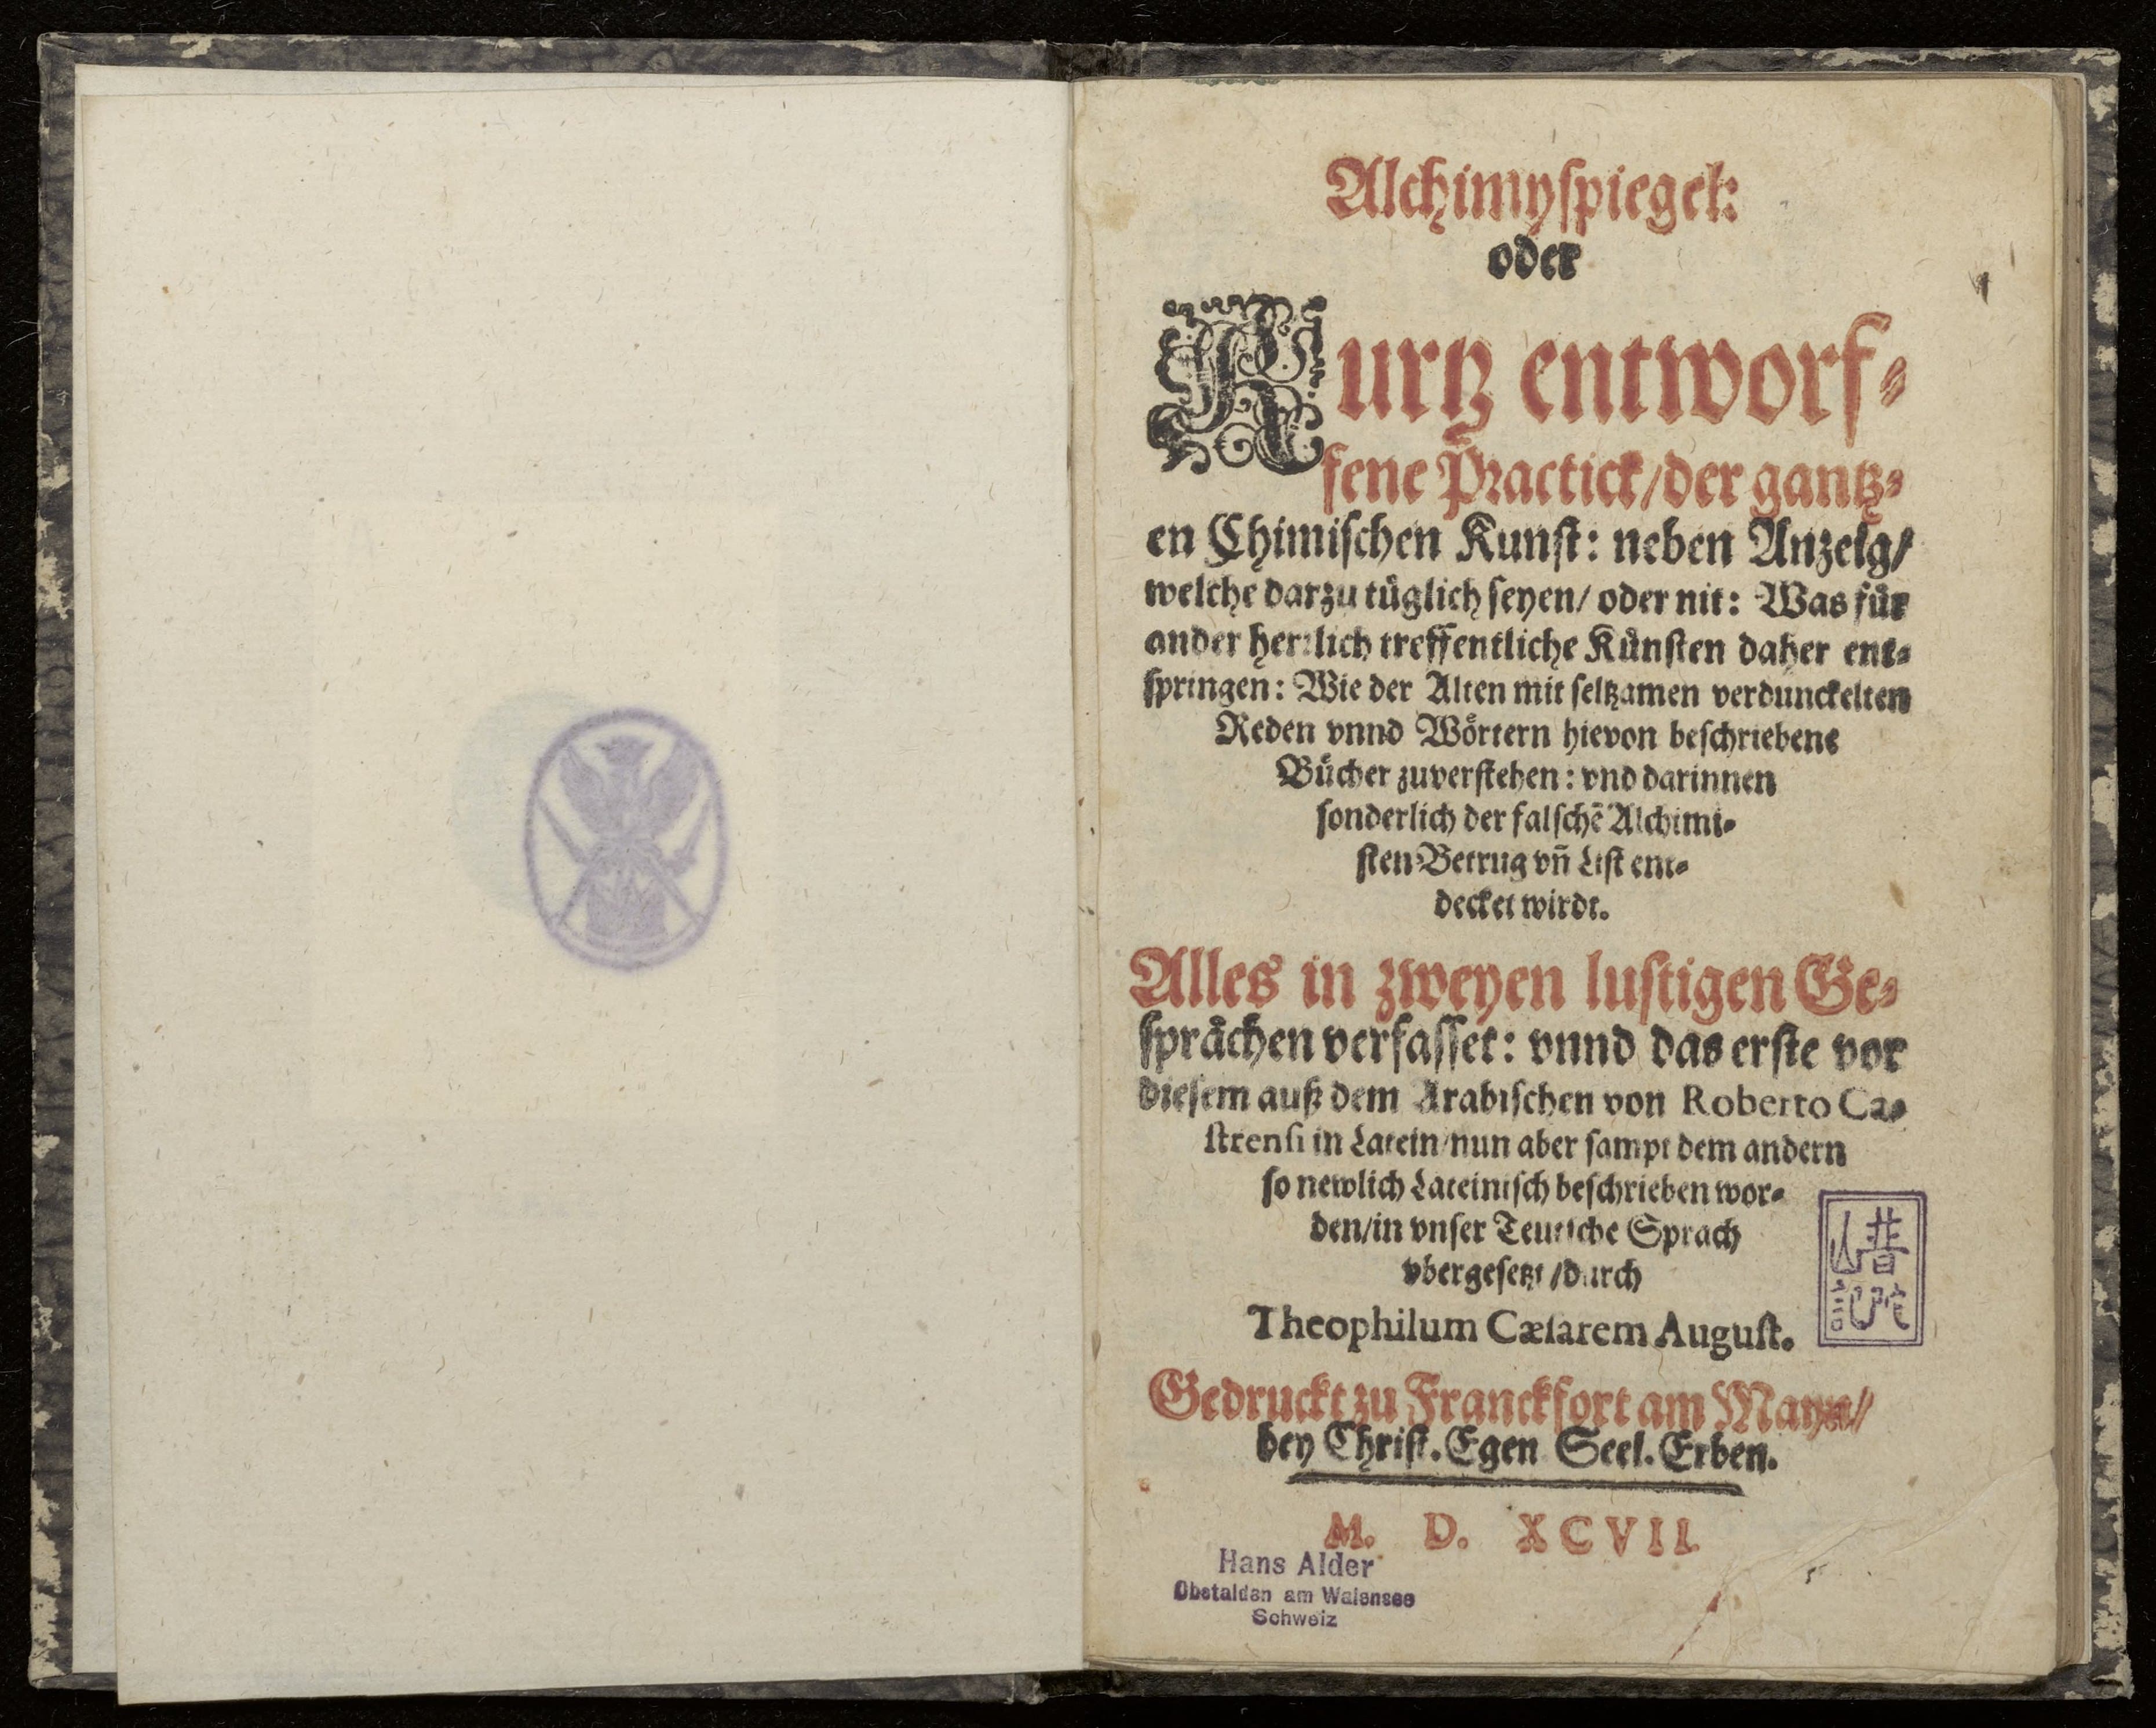 Alchimyſpiegel:
oder
Kurtz entworf⸗
fene Practick/der gantz⸗
en Chimiſchen Kunſt: neben Anzeig/
welche darzu tüglich ſeyen/ oder nit: Was für
ander herrlich treffentliche Künſten daher ent⸗
ſpringen: Wie der Alten mit ſeltzamen verdunckelten
Reden vnnd Wörtern hievon beſchriebene
Bücher zuverſtehen: vnd darinnen
ſonderlich der falſchē Alchimi⸗
ſten Betrug vn̄ Liſt ent⸗
decket wirdt.
Alles in zweyen luſtigen Ge⸗
ſprächen verfaſſet: vnnd das erſte vor
dieſem auß dem Arabiſchen von Roberto Ca⸗
ſtrenſi in Latein/nun aber ſampt dem andern
ſo newlich Lateiniſch beſchrieben wor⸗
den/in vnſer Teutſche Sprach
vbergeſetzt/durch
Theophilum Cæſarem Auguſt.
普陀
山記
Gedruckt zu Franckfort am Mayn/
bey Chriſt. Egen Seel. Erben.
M. D. XCVII.
Hans Alder
Obstalden am Walensee
Schweiz